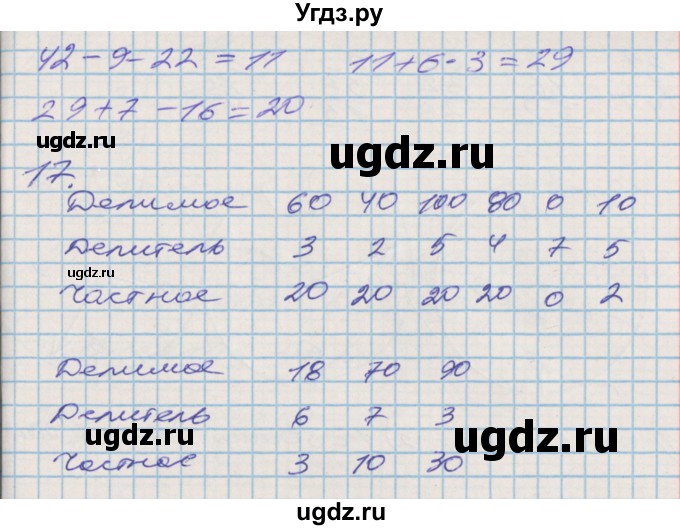 Угдз.ру
42 - 9 - 22 = 11 11 + 6 · 3 = 29
29 + 7 - 16 = 20
ugdz.ru ugdz.ru
17.
Делимое 60 40 100 80 0 10
ugdz.ru
Делитель 3 2 5 4 7 5
ugdz.ru
Частное 20 20 20 20 0 2
Делимое 18 70 90
Делитель 6 7 3
ugdz.ru ugdz.ru
Частное 3 10 30